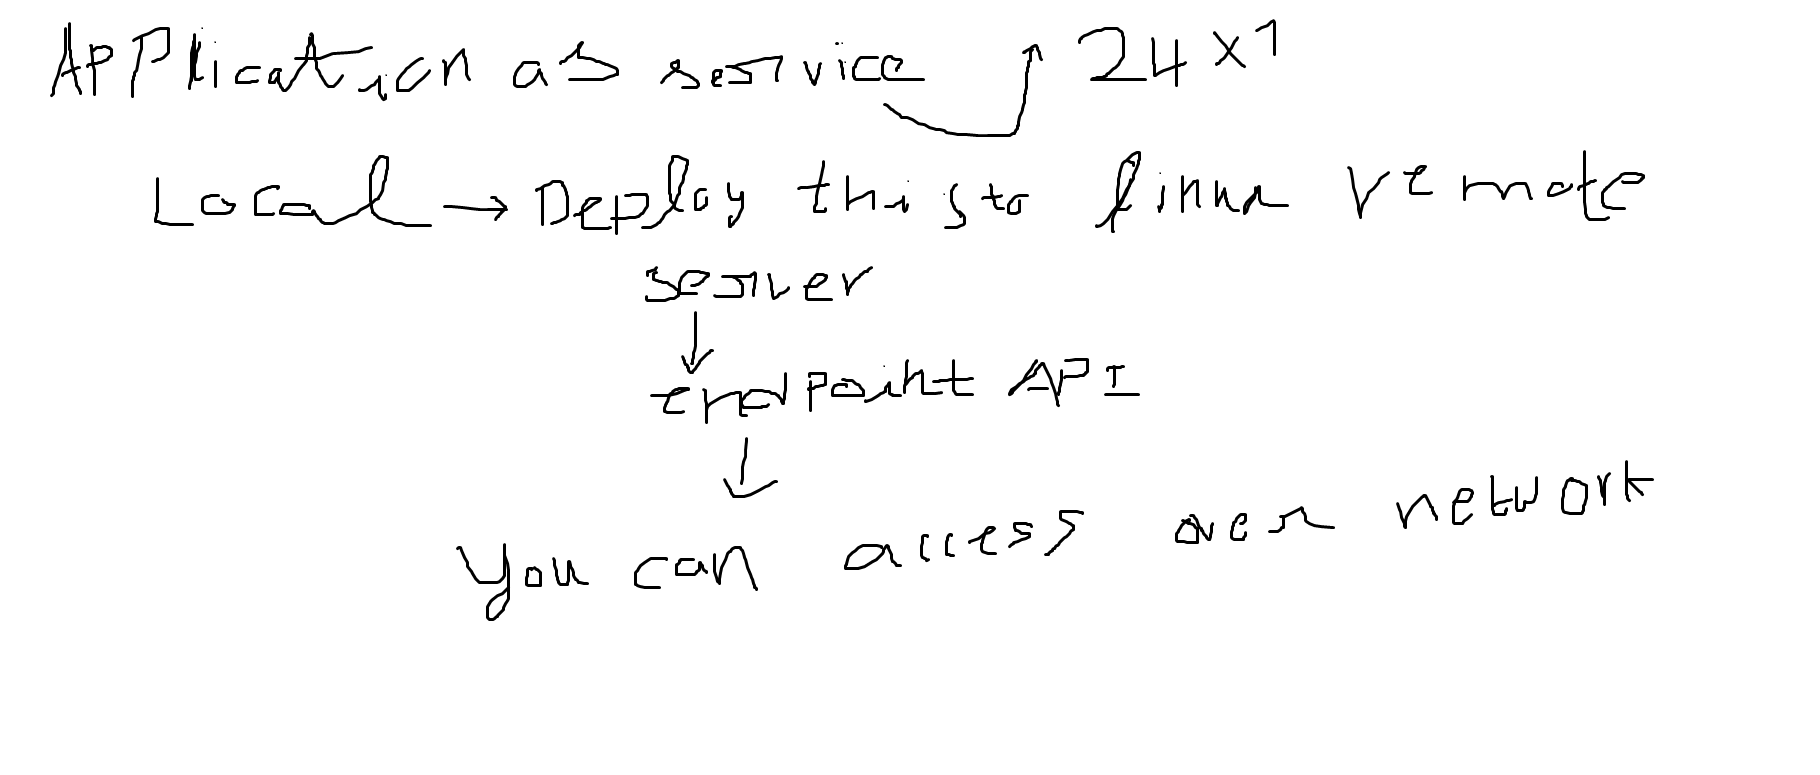 Application as service → 24x7
Local → Deploy this to linux remote
server
↓
endpoint API
↓
You can access over network